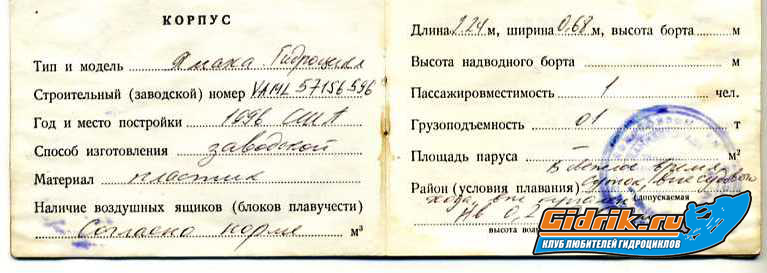 КОРПУС
Тип и модель Ямаха Гидроцикл
Строительный (заводской) номер YAML57156596
Год и место постройки 1996 США
Способ изготовления заводской
Материал пластик
Наличие воздушных ящиков (блоков плавучести)
Согласно норме м³
Длина 2.24 м, ширина 0.68 м, высота борта м
Высота надводного борта м
Пассажировместимость 1 чел.
Грузоподъемность 01 т
Площадь паруса – м²
В светлое время
Район (условия плавания) суток, вне судового
хода, вне купания (допускаемая
hв 0,2
высота вол
Gidrik.ru
КЛУБ ЛЮБИТЕЛЕЙ ГИДРОЦИКЛОВ